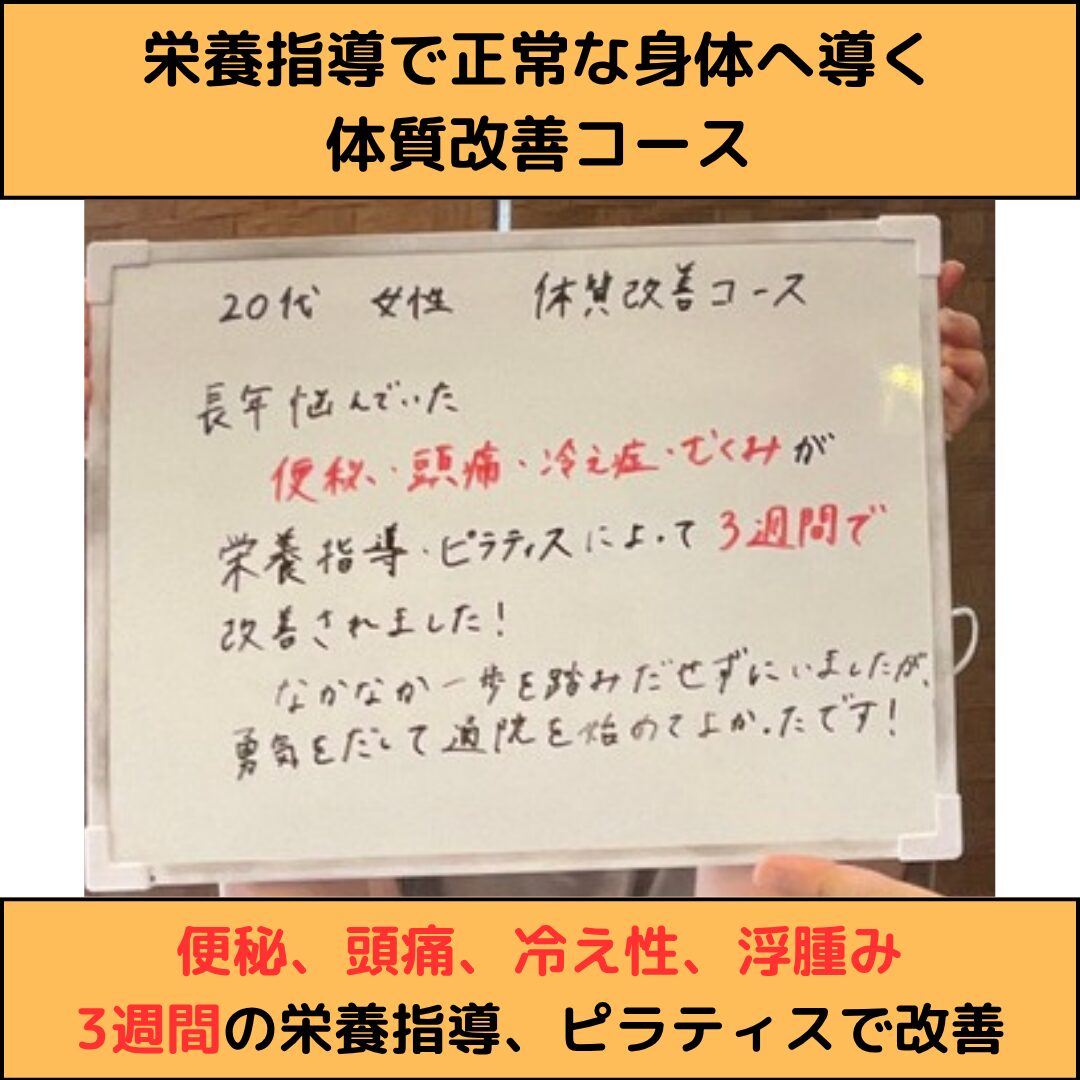 栄養指導で正常な身体へ導く
体質改善コース
20代 女性 体質改善コース
長年悩んでいた
便秘、・頭痛・冷え症・むくみが
栄養指導・ピラティスによって3週間で
改善されました!
なかなか一歩を踏みだせずにいましたが、
勇気をだして通院を始めてよかったです!
便秘、頭痛、冷え性、浮腫み
3週間の栄養指導、ピラティスで改善